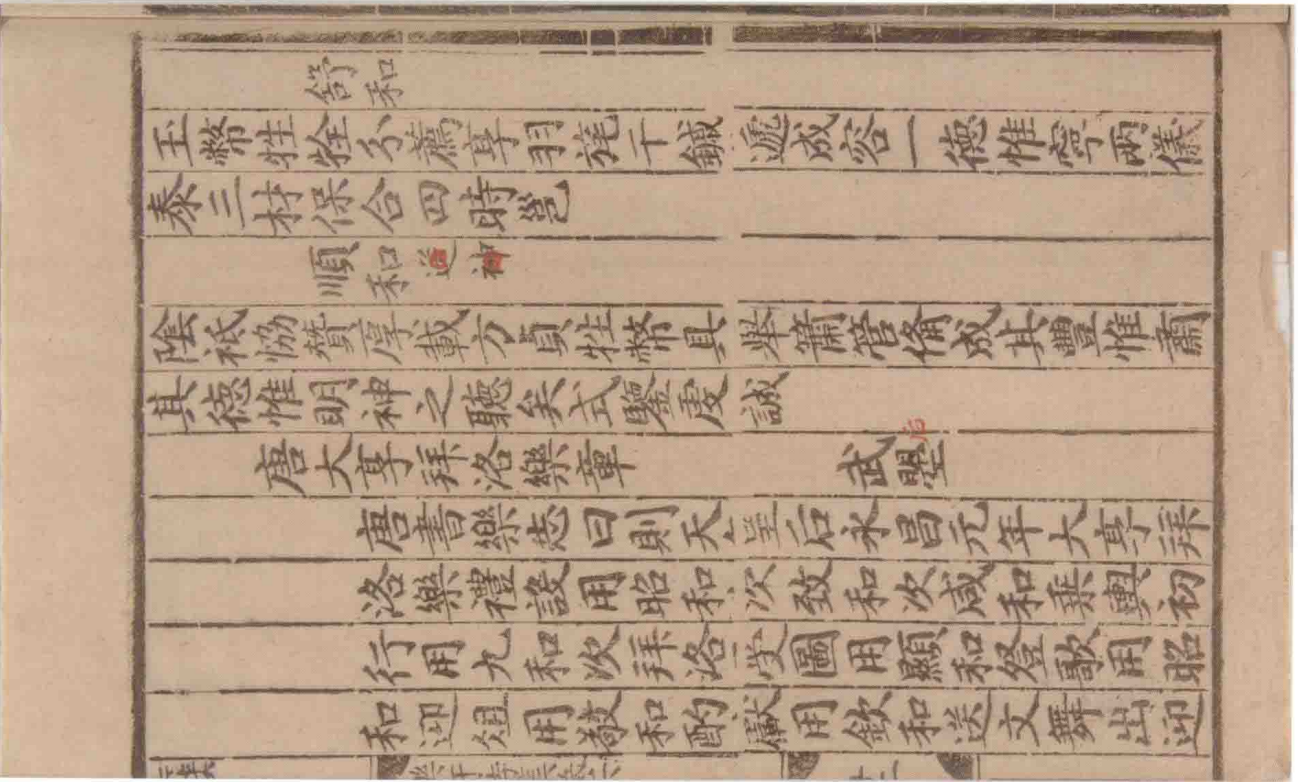 舒和
玉幣牲牷分薦享羽旄干鏚遞成容一德惟寧兩儀
泰三材保合四時邕
順和送神
陰祇協贊厚載方貞牲幣具舉簫管備成其豐惟肅
其德惟明神之聽矣式鑒虔誠
唐大享拜洛樂章 武曌后
唐書樂志曰則天皇后永昌元年大享拜
洛樂禮設用昭和次致和次咸和乘輿初
行用九和次拜洛受圖用顯和登歌用昭
和迎俎用敬和酌獻用欽和送文舞出迎